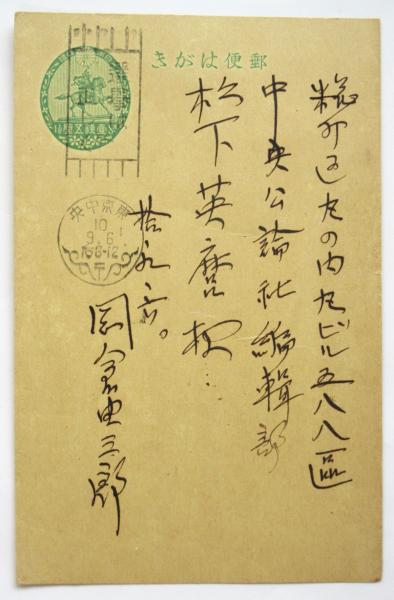 郵便はがき
麹町区丸の内丸ビル五八八區
中央公論社編輯部
松下英麿様
拾九.六。
岡倉由三郎
東京中央
10
9.6
后8-12